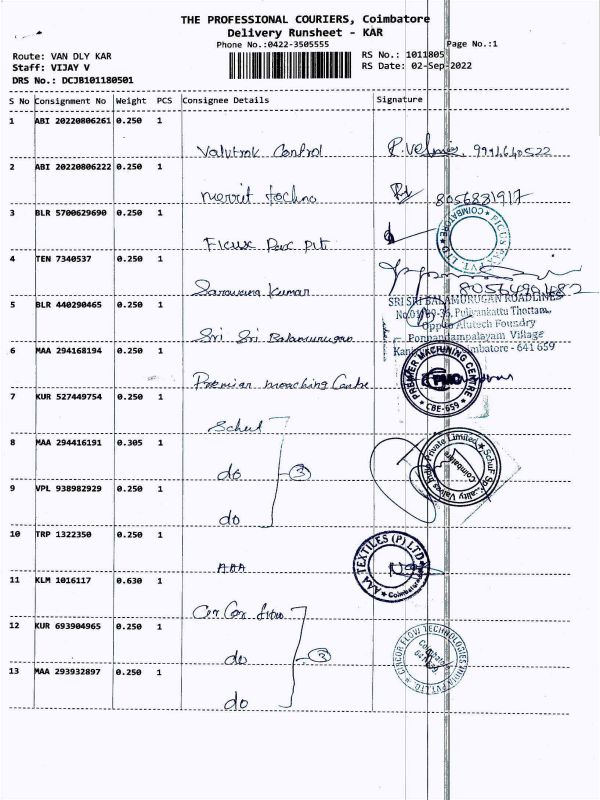 THE PROFESSIONAL COURIERS, Coimbatore
Delivery Runsheet - KAR
Phone No.:0422-3505555
Page No.:1
Route: VAN DLY KAR
RS No.: 1011805
Staff: VIJAY V
RS Date: 02-Sep-2022
DRS No.: DCJB101180501
S No Consignment No Weight PCS Consignee Details Signature
1 ABI 20220806261 0.250 1
Valvtrok Control P.Velmu 9994640522
2 ABI 20220806222 0.250 1
Merrit techno 8056881917
3 BLR 5700629690 0.250 1
Ficus Pax Pvt
FICUS PAX PVT. LTD. COIMBATORE
4 TEN 7340537 0.250 1
Saravana Kumar
5 BLR 440290465 0.250 1
Sri Sri Balamurugan
SRI SRI BALAMURUGAN ROADLINES
Pujavankattu Thottam,
Opp to Alutech Foundry
Ponnandampalayam Village
Coimbatore - 641 659
6 MAA 294168194 0.250 1
Premier Maching Centre
PREMIER MACHINING CENTRE
PMC
CBE-659
7 KUR 527449754 0.250 1
Schuf
8 MAA 294416191 0.305 1
do 3
Schuf Speciality Valves India Private Limited
Coimbatore
9 VPL 938982929 0.250 1
do
10 TRP 1322350 0.250 1
AAA
AAA TEXTILES (P) LTD
Coimbatore
11 KLM 1016117 0.630 1
Cir Cor flow
12 KUR 693904965 0.250 1
do 3
CIRCOR FLOW TECHNOLOGIES INDIA PVT. LTD.
Coimbatore
13 MAA 293932897 0.250 1
do